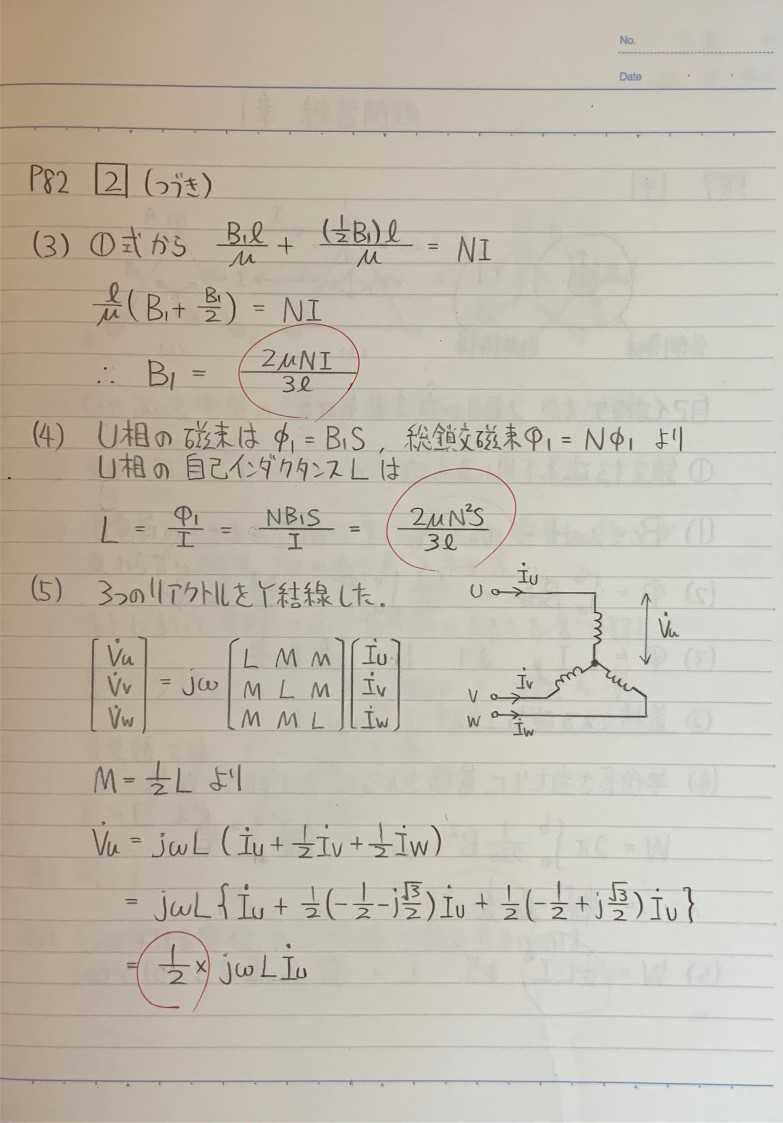 No.
Date
P82 2 (つづき)
(3) ①式から B₁ℓ/μ + (½B₁)ℓ/μ = NI
ℓ/μ(B₁ + B₁/2) = NI
∴ B₁ = 2μNI/3ℓ
(4) U相の磁束は φ₁ = B₁S, 総鎖交磁束Φ₁ = Nφ₁ より
U相の自己インダクタンスLは
L = Φ₁/I = NB₁S/I = 2μN²S/3ℓ
(5) 3つのリアクトルをY結線した.
U İu
V̇u
V İv
W İw
[V̇u V̇v V̇w] = jω [L M M M L M M M L] [İu İv İw]
M = ½L より
V̇u = jωL (İu + ½İv + ½İw)
= jωL{İu + ½(-½ - j√3/2)İu + ½(-½ + j√3/2)İu}
= ½ × jωLİu